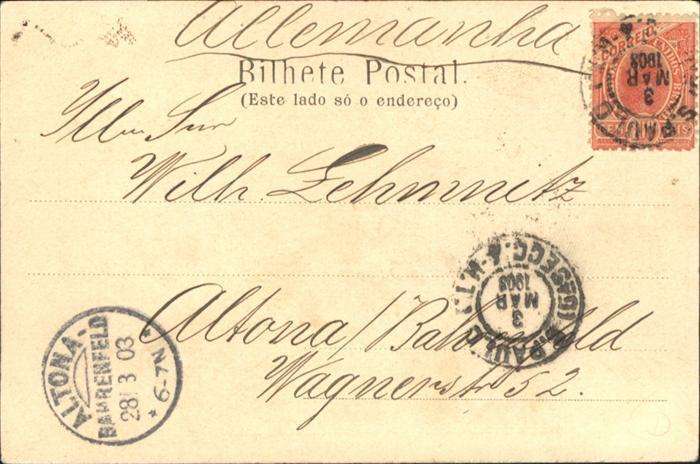 Allemanha
Bilhete Postal.
(Este lado só o endereço)
Illm Snr
Wilh. Schmnitz
Altona/Bahrenfeld
Wagnerstr 52.
S. PAULO
3
MAR
1903
S. PAULO (6A SECC. 4A-M.T.)
3
MAR
1903
ALTONA-
BAHRENFELD
28 3 03
* 6-7N